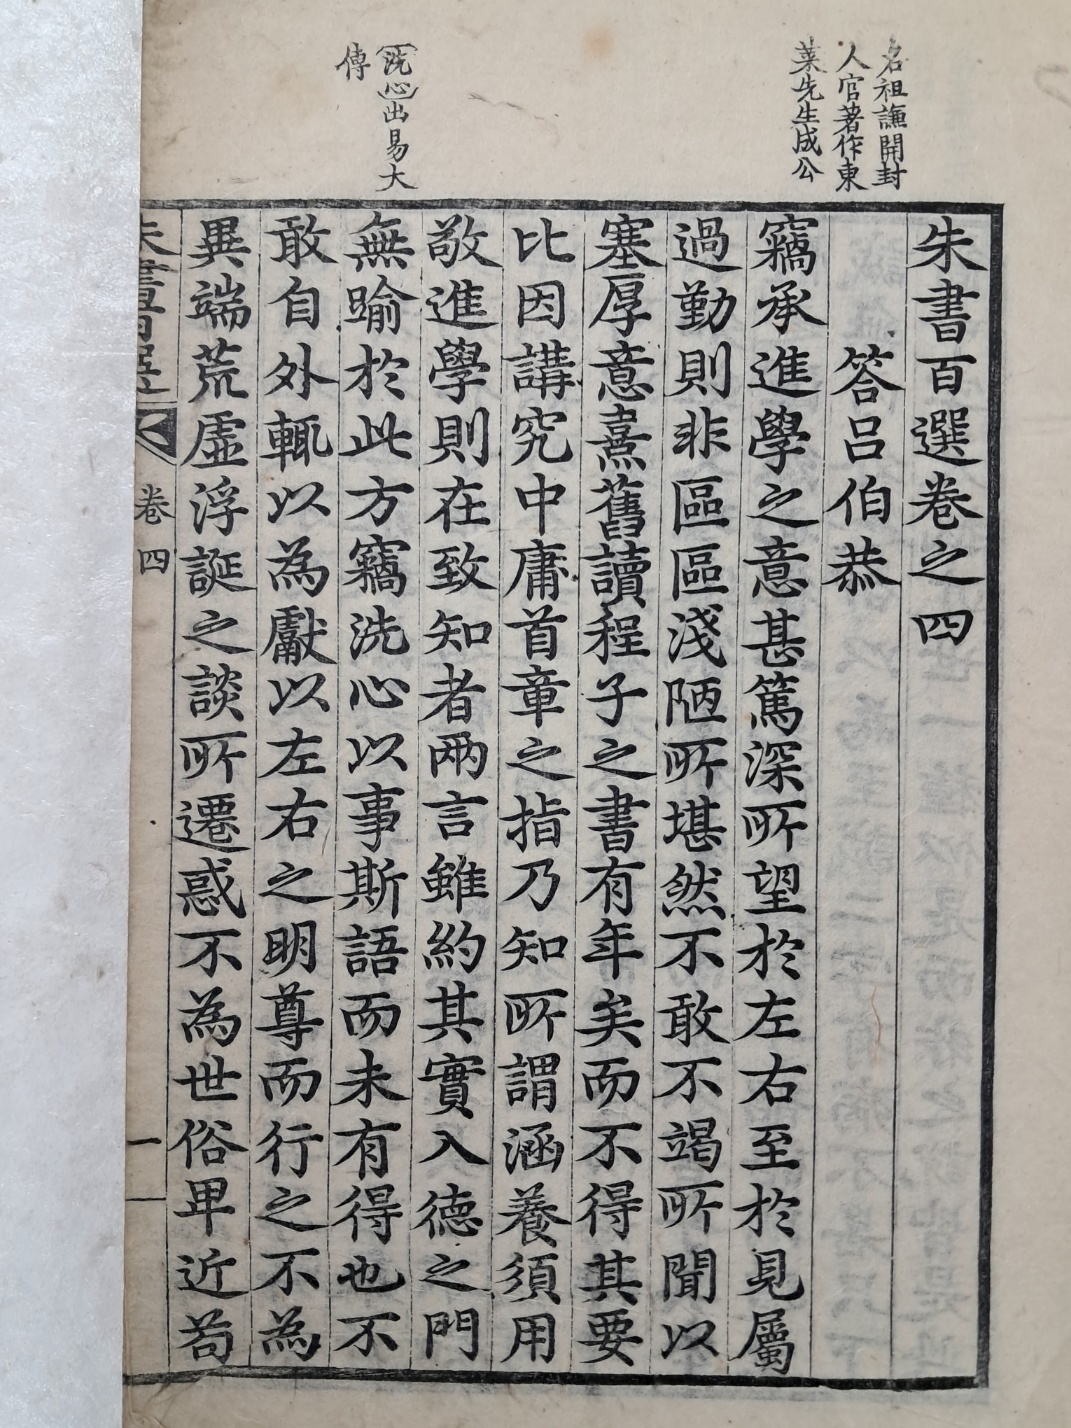 名祖謙開封
人官著作東
萊先生成公
洗心出易大
傳
朱書百選卷之四
答呂伯恭
竊承進學之意甚篤深所望於左右至於見屬
過勤則非區區淺陋所堪然不敢不竭所聞以
塞厚意熹舊讀程子之書有年矣而不得其要
比因講究中庸首章之指乃知所謂涵養須用
敬進學則在致知者兩言雖約其實入德之門
無踰於此方竊洗心以事斯語而未有得也不
敢自外輒以為獻以左右之明尊而行之不為
異端荒虛浮誕之談所遷惑不為世俗卑近苟
朱書百選 卷四 一